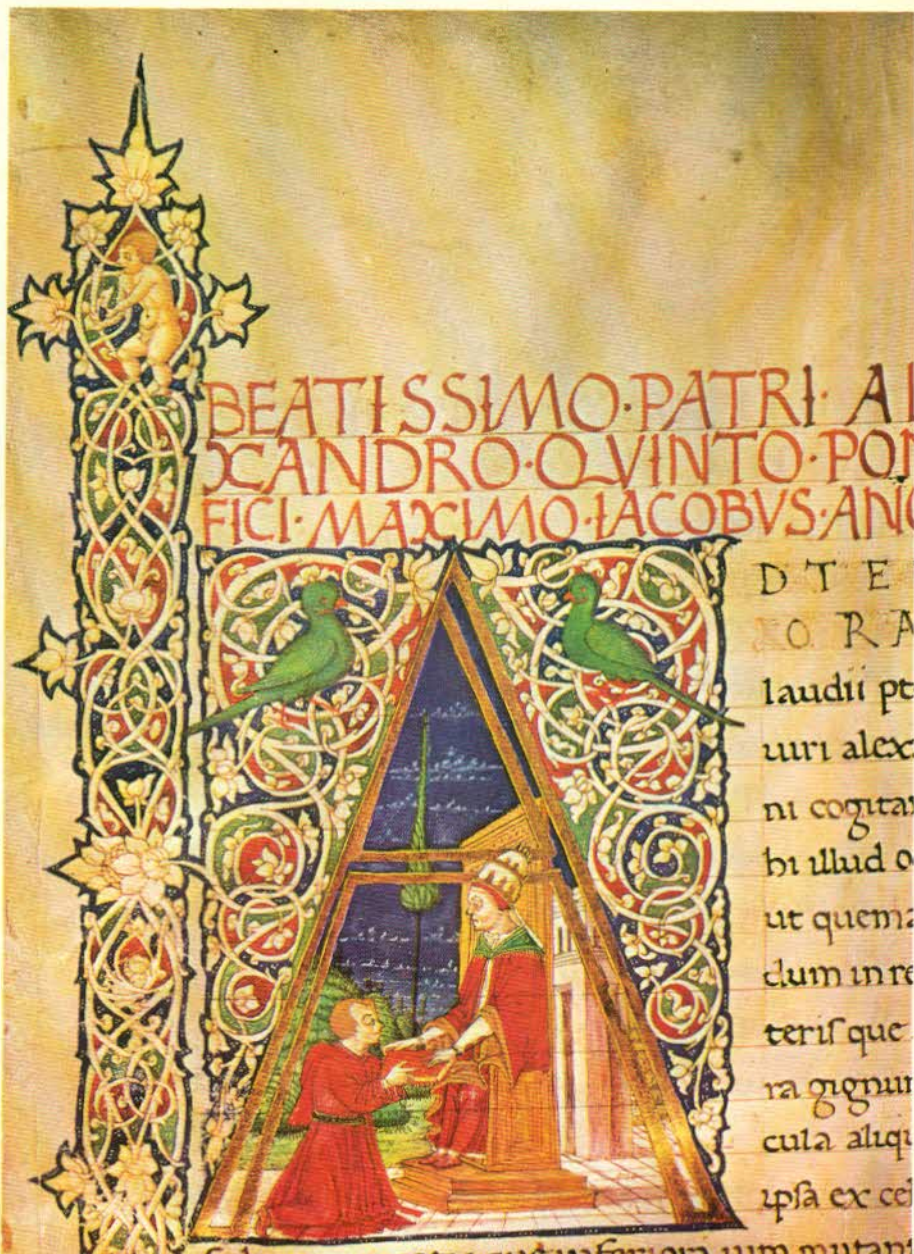 BEATISSIMO·PATRI·A
XANDRO·QVINTO·PON
FICI·MAXIMO·IACOBVS·ANG
D T E
O R A
laudii pt
uiri alex
ni cogita
bi illud o
ut quema
dum in re
terisque
ra gignun
cula aliqu
ipsa ex cel